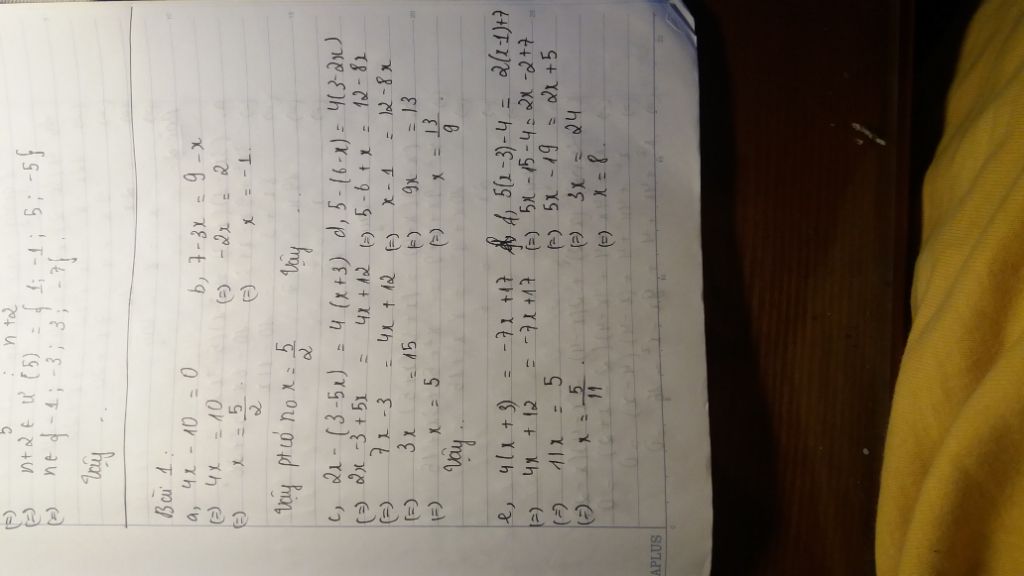 (=) 5 ⋮ n+2
(=) n+2 ∈ Ư (5) = { 1 ; -1 ; 5 ; -5 }
(=) n ∈ { -1 ; -3 ; 3 ; -7 }.
Vậy
Bài 1:
a, 4x - 10 = 0
(=) 4x = 10
(=) x = 5/2
Vậy pt có n0 x = 5/2
b, 7 - 3x = 9 - x
(=) -2x = 2
(=) x = -1.
Vậy
c, 2x - (3 - 5x) = 4 (x+3)
(=) 2x - 3 + 5x = 4x + 12
(=) 7x - 3 = 4x + 12
(=) 3x = 15
(=) x = 5
Vậy..
d, 5 - (6 - x) = 4(3 - 2x)
(=) 5 - 6 + x = 12 - 8x
(=) x - 1 = 12 - 8x
(=) 9x = 13
(=) x = 13/9.
e, 4(x + 3) = -7x + 17
(=) 4x + 12 = -7x + 17
(=) 11x = 5
(=) x = 5/11
f, 5(x-3) - 4 = 2(x-1)+7
(=) 5x - 15 - 4 = 2x - 2 + 7
(=) 5x - 19 = 2x + 5
(=) 3x = 24
(=) x = 8.
APLUS